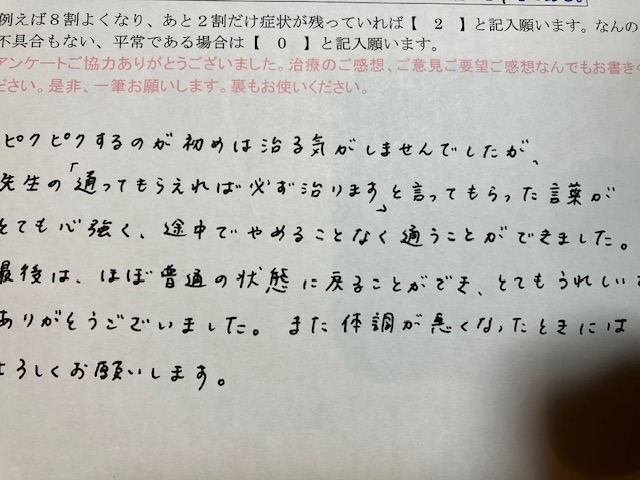 例えば８割よくなり、あと２割だけ症状が残っていれば【　２　】と記入願います。なんの
不具合もない、平常である場合は【　０　】と記入願います。
アンケートご協力ありがとうございました。治療のご感想、ご意見ご要望ご感想なんでもお書きく
ださい。是非、一筆お願いします。裏もお使いください。
ピクピクするのが初めは治る気がしませんでしたが、
先生の「通ってもらえれば必ず治ります」と言ってもらった言葉が
とても心強く、途中でやめることなく通うことができました。
最後は、ほぼ普通の状態に戻ることができ、とてもうれしいで
ありがとうございました。また体調が悪くなったときには
よろしくお願いします。